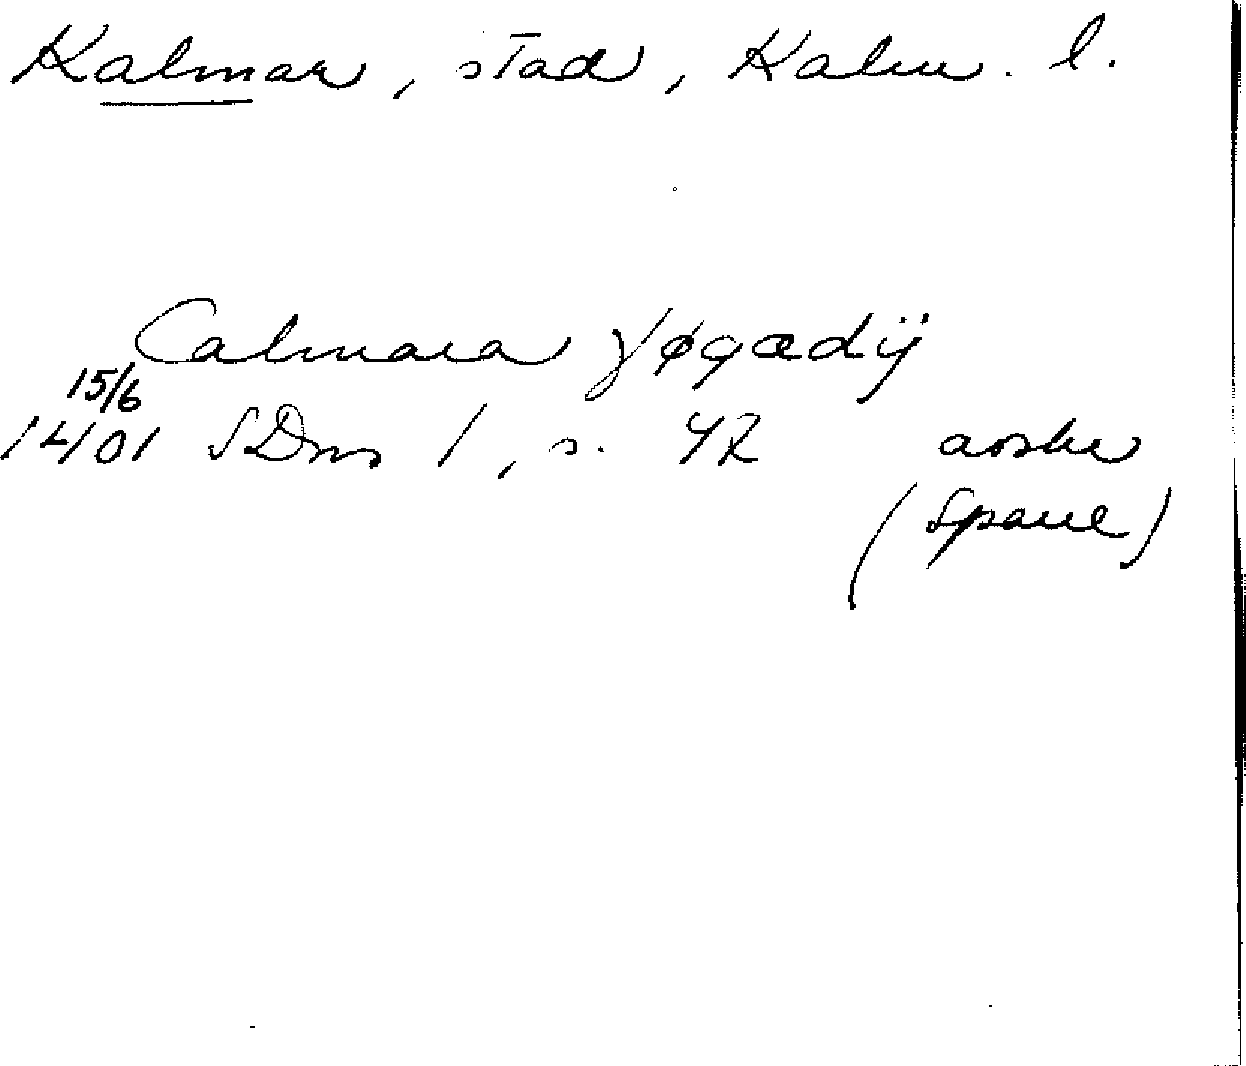 Kalmar, stad, Kalm. l.
Calmara føgædij
15/6
1401 SDns 1, s. 42 avskr
(Spane)